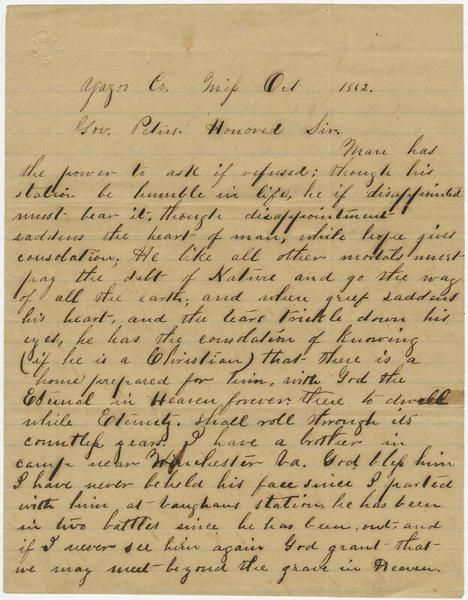 Yazoo Co. Miss Oct 1862.
Gov. Petus. Honored Sir.
Man has
the power to ask if refused; though his
station be humble in life, he if disappointed
must bear it, though disappointment
saddens the heart of man, while hope gives
consolation; He like all other mortals must
pay the debt of Nature and go the way
of all the earth; and when grief saddens
his heart, and the tears trickle down his
eyes, he has the consolation of knowing
(if he is a Christian) that there is a
home prepared for him, with God the
Eternal in Heaven forever there to dwell
while Eternity shall roll through its
countless years. I have a brother in
camp near Winchester Va. God bless him
I have never beheld his face since I parted
with him at Vaughans station, he has been
in two battles since he has been out, and
if I never see him again God grant that
we may meet beyond the grave in Heaven.